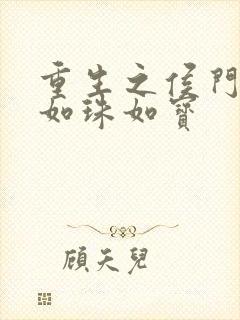 重生之侯門
如珠如寶
顧天兒